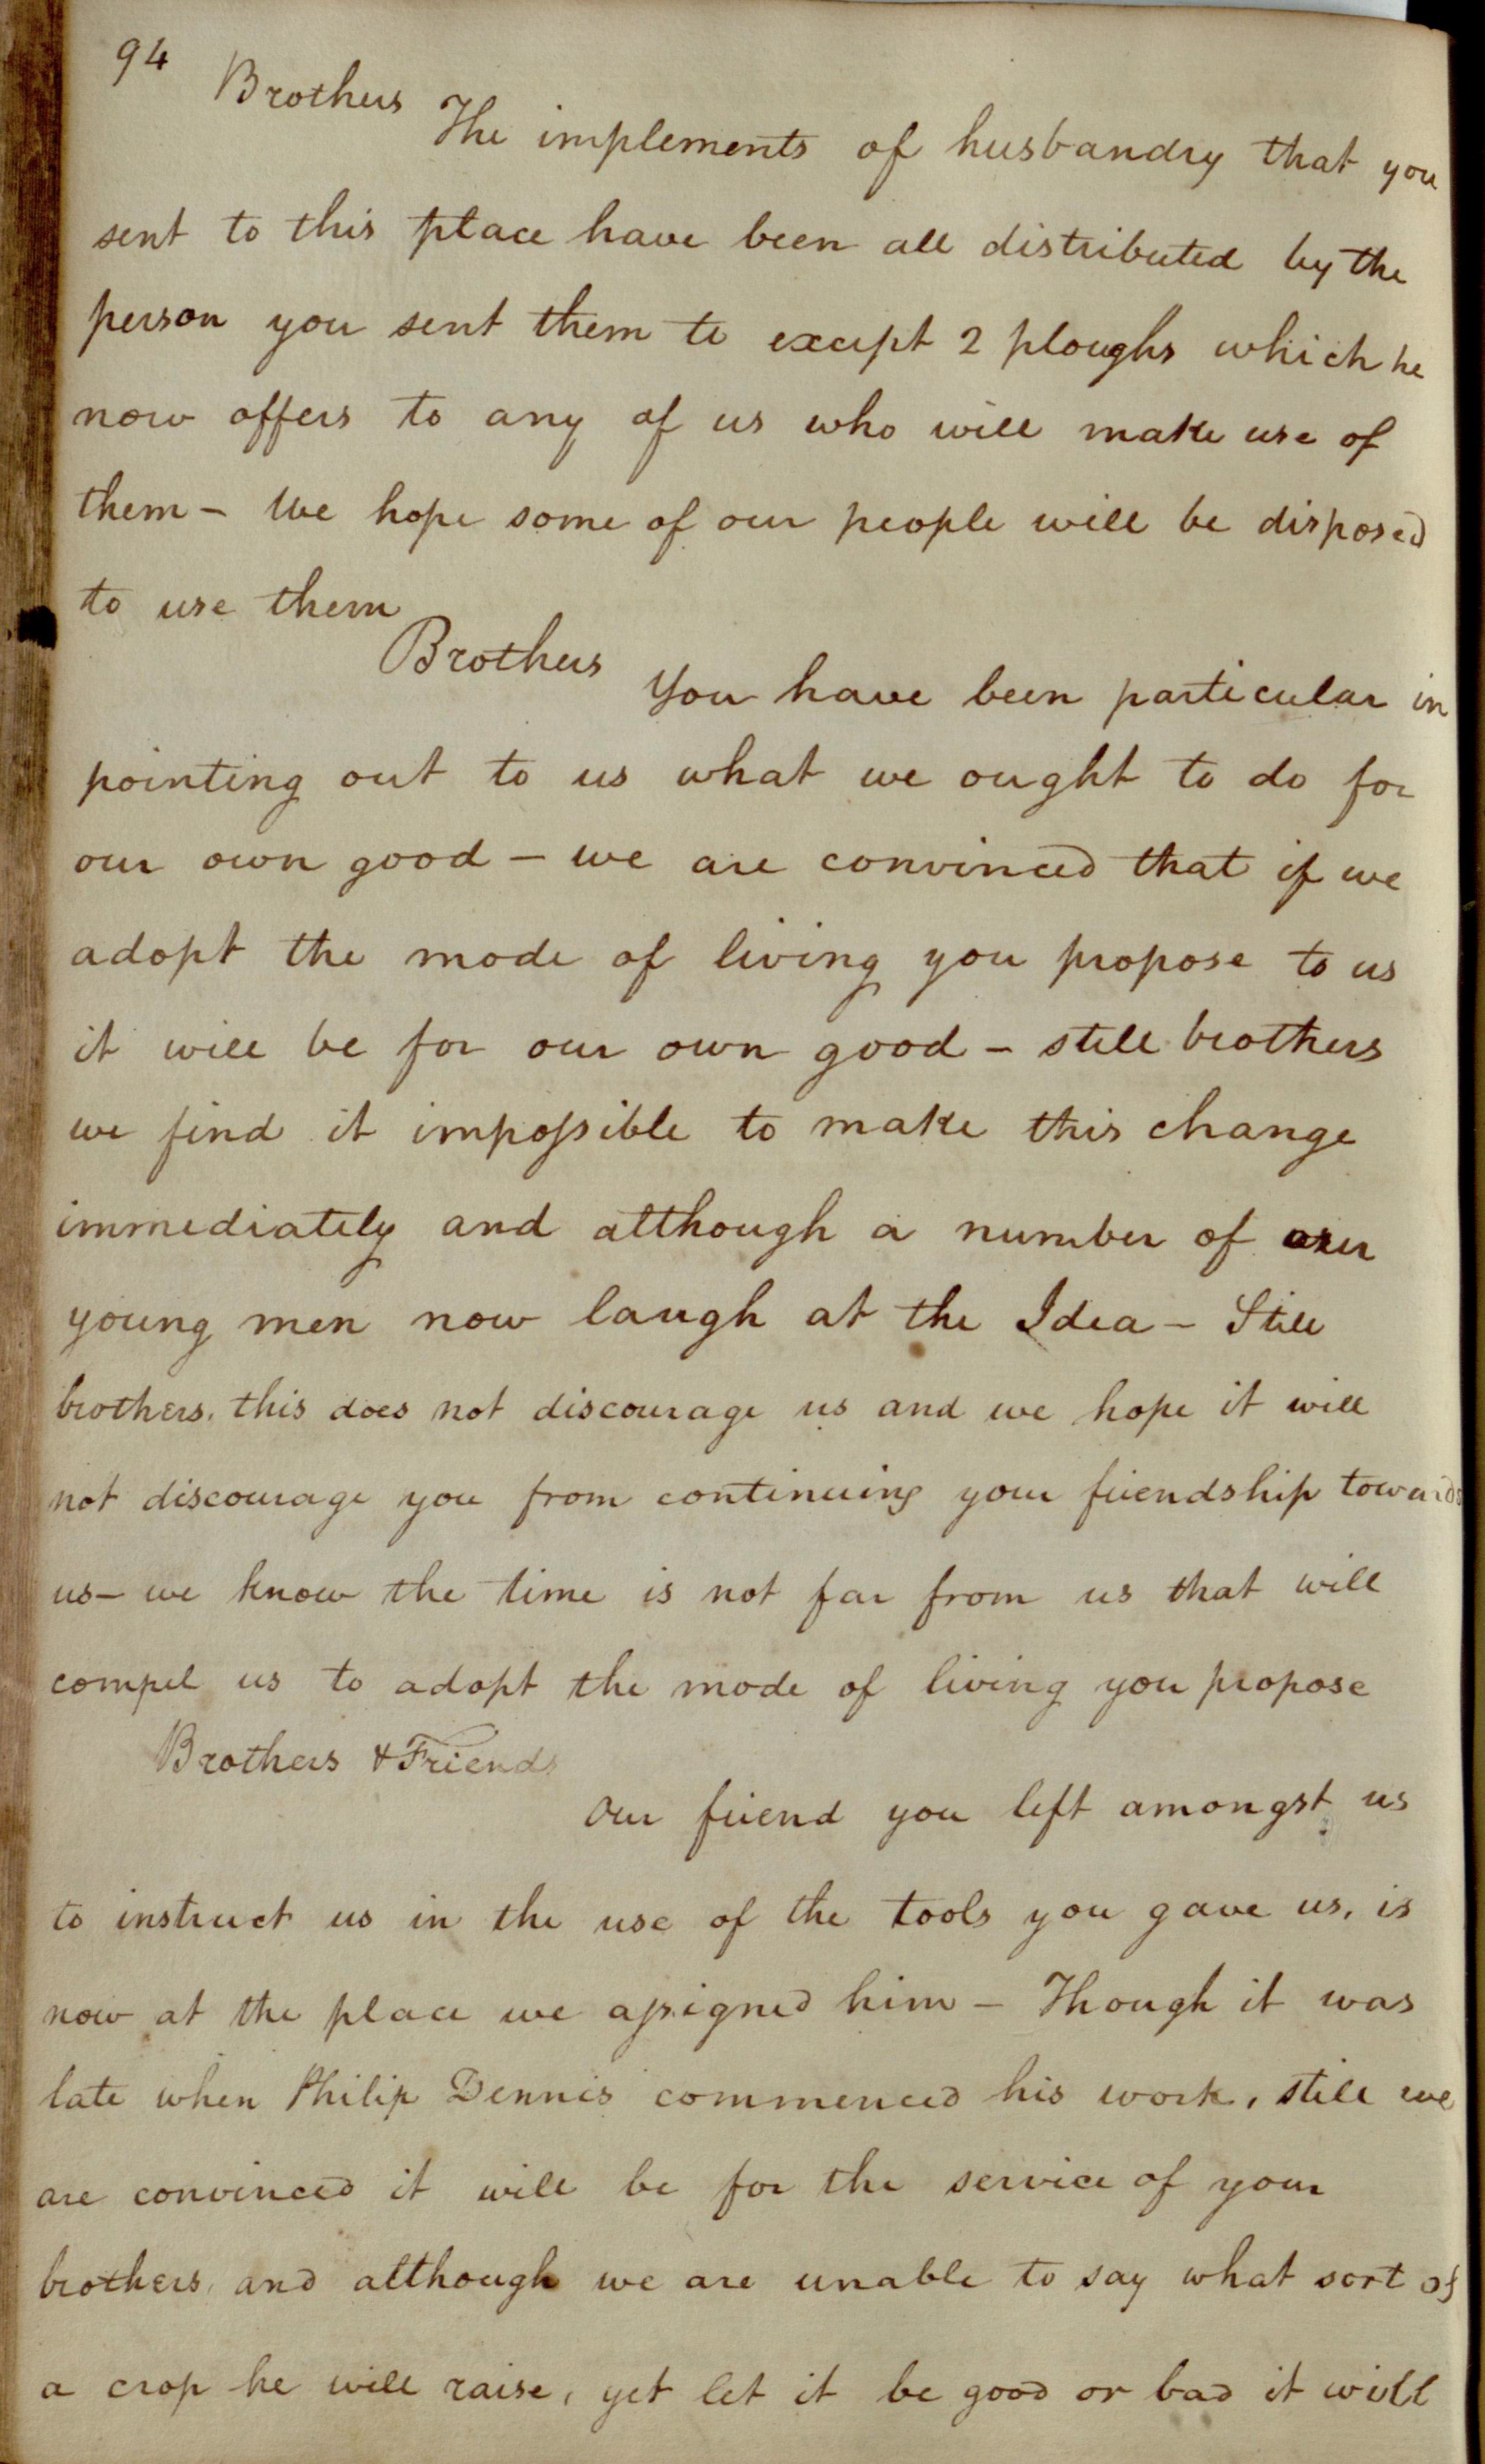 94
Brothers
The implements of husbandry that you
sent to this place have been all distributed by the
person you sent them to except 2 ploughs which he
now offers to any of us who will make use of
them – We hope some of our people will be disposed
to use them
Brothers
You have been particular in
pointing out to us what we ought to do for
our own good – we are convinced that if we
adopt the mode of living you propose to us
it will be for our own good – still brothers
we find it impossible to make this change
immediately and although a number of our
young men now laugh at the Idea – Still
brothers, this does not discourage us and we hope it will
not discourage you from continuing your friendship towards
us – we know the time is not far from us that will
compel us to adopt the mode of living you propose
Brothers & Friends
Our friend you left amongst us
to instruct us in the use of the tools you gave us, is
now at the place we assigned him – Though it was
late when Philip Dennis commenced his work, still we
are convinced it will be for the service of your
brothers, and although we are unable to say what sort of
a crop he will raise, yet let it be good or bad it will